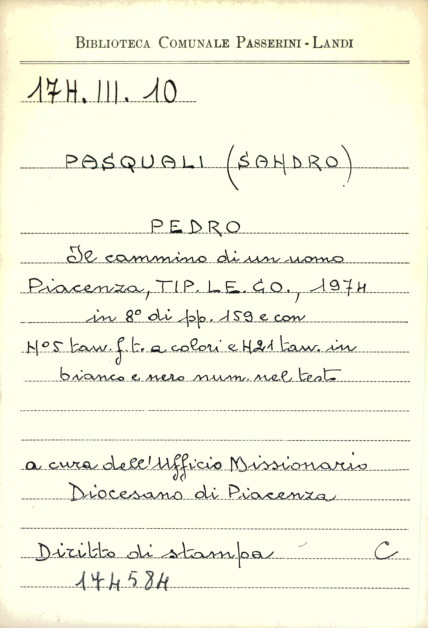 BIBLIOTECA COMUNALE PASSERINI - LANDI
174. III. 10
PASQUALI (SANDRO)
PEDRO
Il cammino di un uomo
Piacenza, TIP. LE. CO., 1974
in 8° di pp. 159 e con
N°5 tavv. f. t. a colori e N21 tavv. in
bianco e nero num. nel testo
a cura dell'Ufficio Missionario
Diocesano di Piacenza
Diritto di stampa C
174584